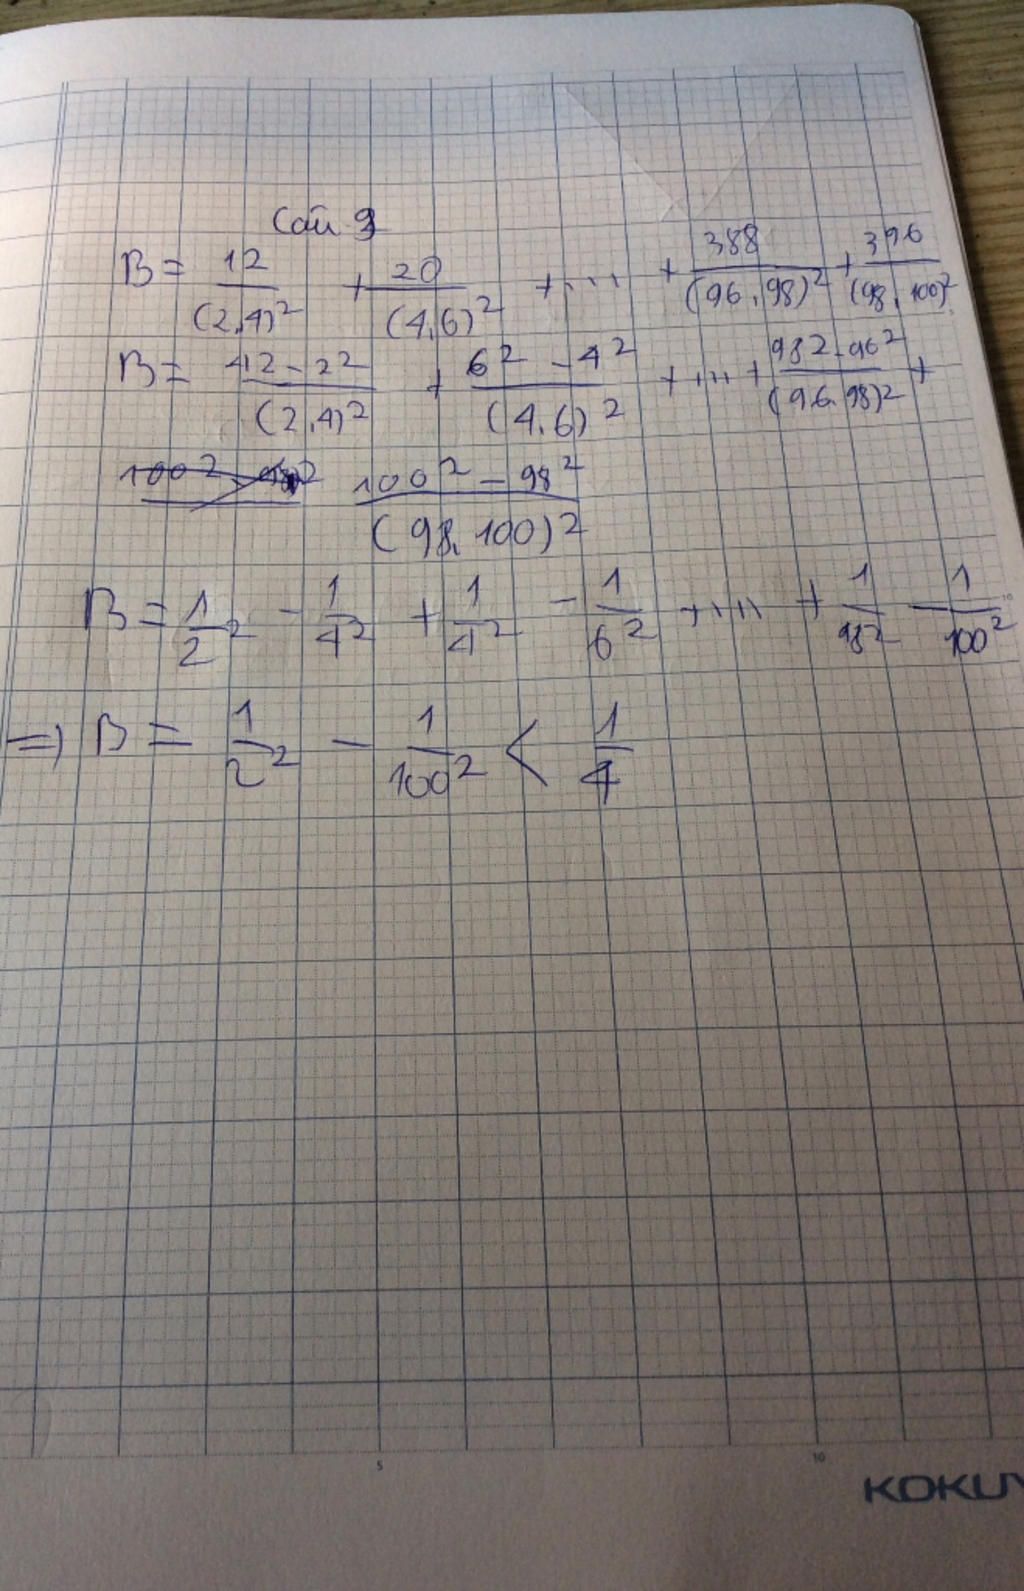 Câu 9
B = 12/(2.4)² + 20/(4.6)² + .... + 388/(96.98)² + 396/(98.100)²
B = 4² - 2²/(2.4)² + 6² - 4²/(4.6)² + .... + 98² - 96²/(96.98)² +
100² - 98²/(98.100)²
B = 1/2² - 1/4² + 1/4² - 1/6² + .... + 1/98² - 1/100²
=> B = 1/2² - 1/100² < 1/4
5 10
KOKUY